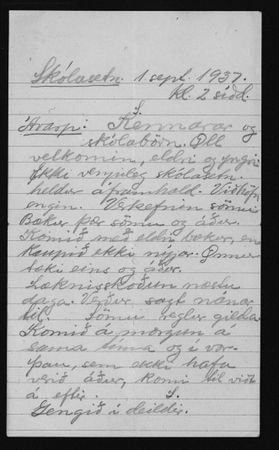 Skólasetn. 1. sept. 1937.
kl. 2 síðd.
S.
Ávarp: Kennarar og
skólabörn. Öll
velkomin, eldri og yngri
Ekki venjuleg skólasetn.
heldur áframhald. Viðhöfn
engin. Verkefnin sömu
Bækur þær sömu og áður.
Komið með eldri bækur, en
kaupið ekki nýjar. Önnur
tæki eins og áður.
Læknisskoðun næstu
daga. Verður sagt nánar
til. Sömu reglur gilda
Komið á morgun á
sama tíma og í vor.
Þau, sem ekki hafa
verið áður, komi til viðt.
á eftir. S.
Gengið í deildir.